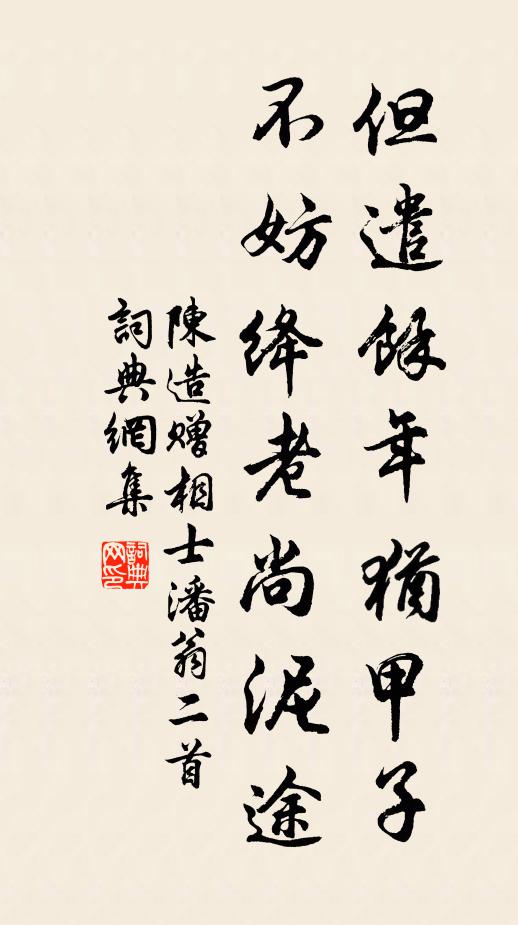 但遣餘年猶甲子
不妨绛老尚泥途
陳造赠相士潘翁二首
詞典網集
詞典网印